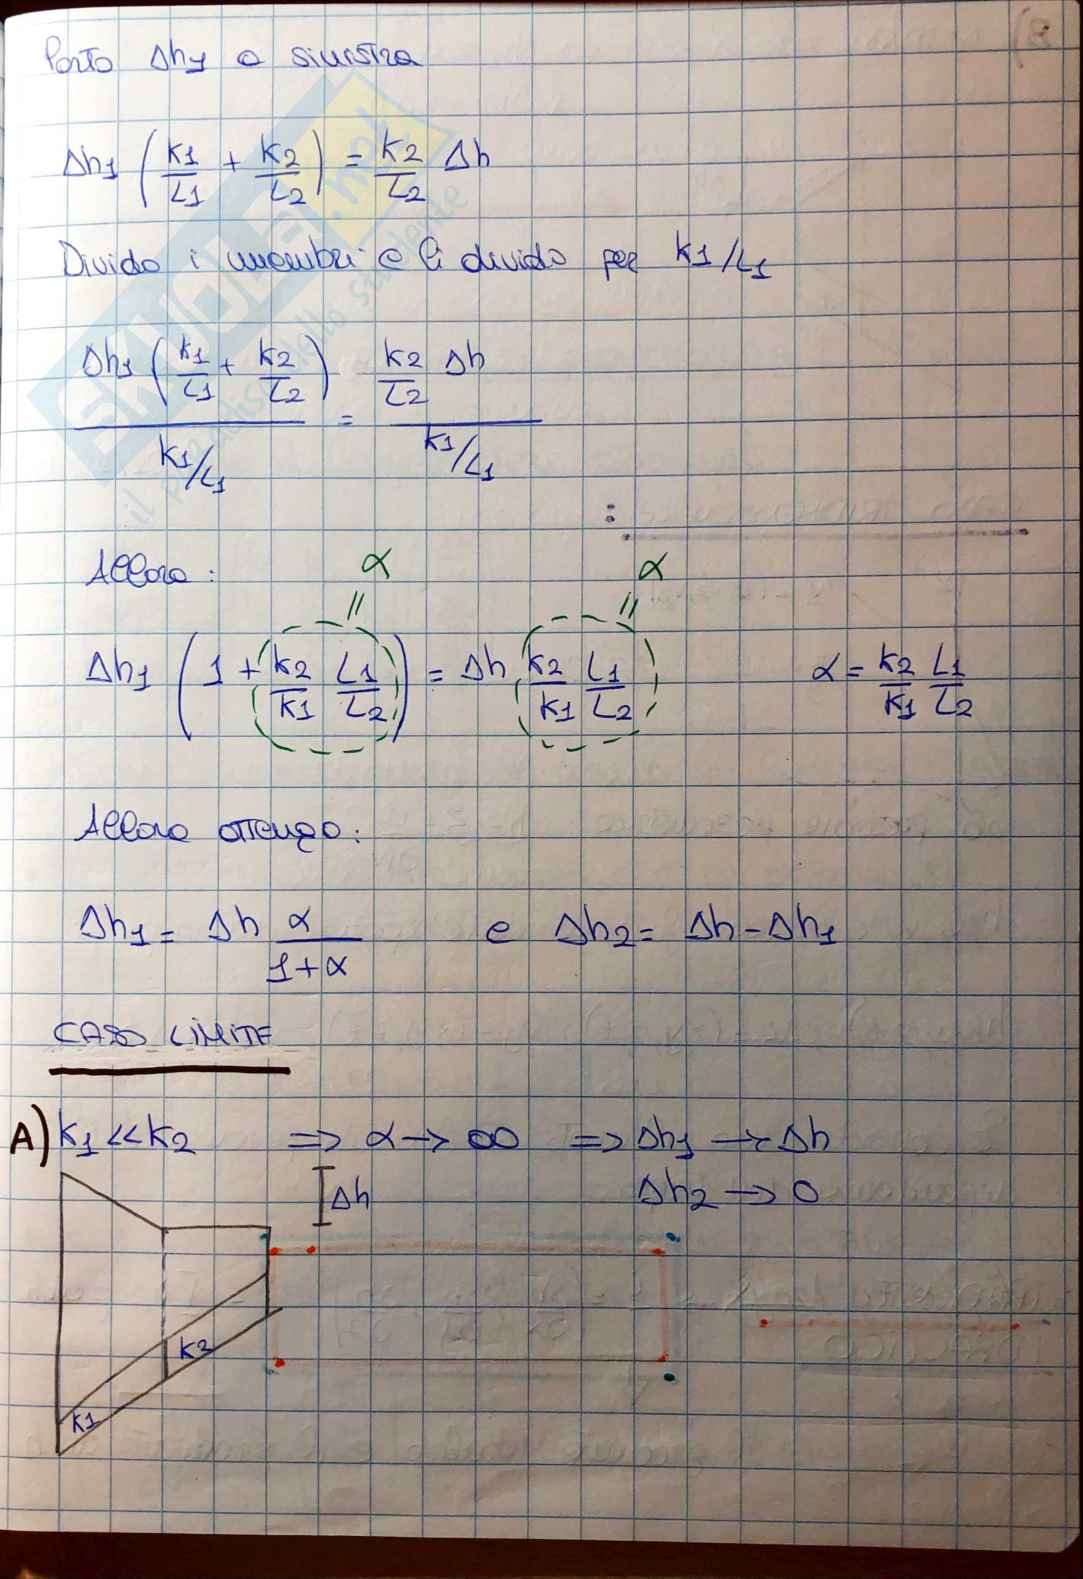 Porto Δh1 a sinistra
Δh1 (K1/L1 + K2/L2) = K2/L2 Δh
Divido i membri e li divido per K1/L1
Δh1 (K1/L1 + K2/L2) / K1/L1 = K2/L2 Δh / K1/L1
Allora:
α α
= =
Δh1 (1 + K2/K1 L1/L2) = Δh K2/K1 L1/L2 α = K2/K1 L1/L2
Allora ottengo:
Δh1 = Δh α/1+α e Δh2 = Δh - Δh1
CASO LIMITE
A) K1 << K2 => α → ∞ => Δh1 → Δh
Δh Δh2 → 0
K2
K1
SKUOLA.net
il paradiso dello studente